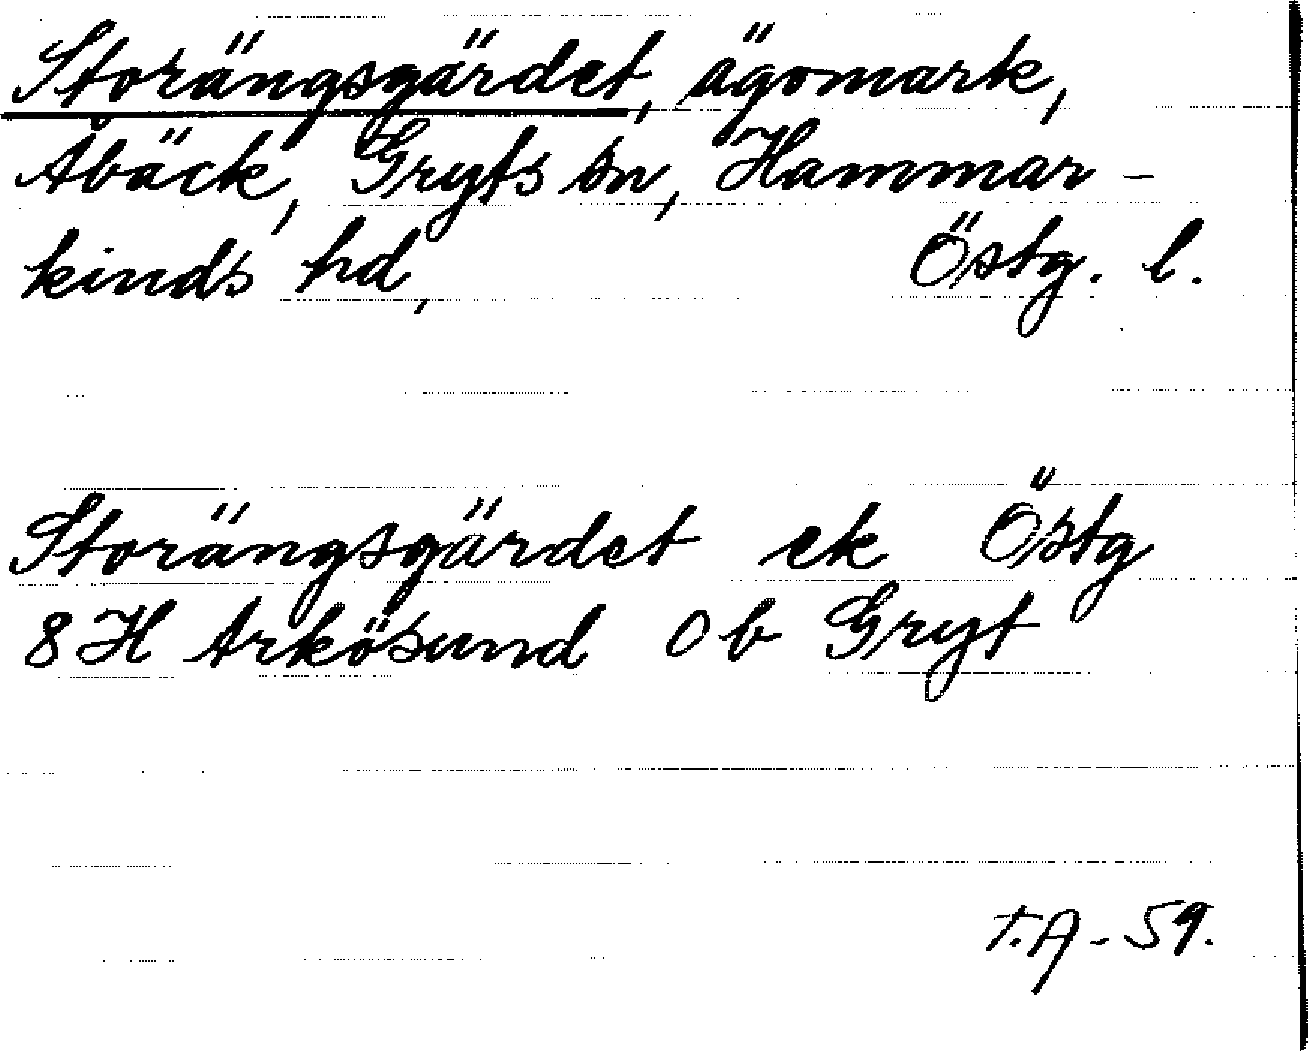 Storängsgärdet, ägomark,
Åbäck, Gryts sn, Hammar-
kinds hd, Östg. l.
Storängsgärdet ek Östg
8H Arkösund 0b Gryt
T.A-59.